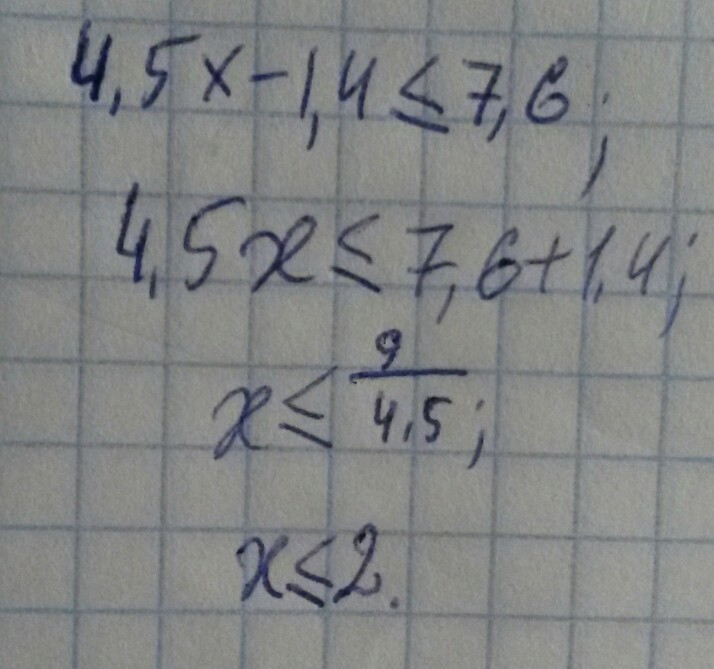 4,5x-1,4≤7,6;
4,5x≤7,6+1,4;
x≤9/4,5;
x≤2.